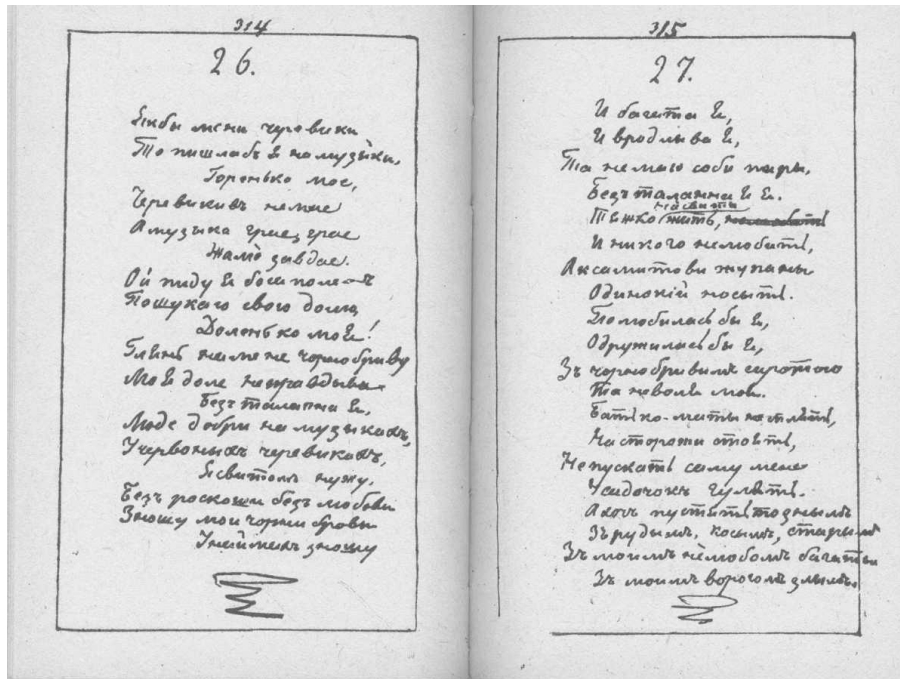 314
26.
Якбы мени черевики
То пишлабъ я на музыки,
Горенько мое,
Черевикивъ немае
А музыка грае, грае
Жалю завдае.
Ой пиду я боса полемъ
Пошукаю свою долю,
Доленько моя!
Глянь на мене чорнобриву
Моя доле неправдыва
Безталанна я,
Люде добри на музыкахъ,
У червоныхъ черевикахъ,
Я свитомъ нужу.
Безъ роскоши безъ любови
Зношу мои чорни бровы
У наймахъ зношу
315
27.
И багата я,
И вродлыва я,
Та не маю соби пары,
Безъталанна я я.
на свити
Тяжко жить,
И никого нелюбыть,
Аксамитови жупаны
Одинокій носыть.
Полюбилась бы я,
Одружилась бы я,
Зъ чорнобривымъ сиротою
Та неволя моя.
Батько-маты не сплять,
На сторожи стоять,
Непускать саму мене
У садочокъ гулять.
А хочъ пустять то знымъ
Зъ рудымъ, косымъ, старымъ
Зъ моимъ нелюбомъ багатымъ
Зъ моимъ ворогомъ злымъ.